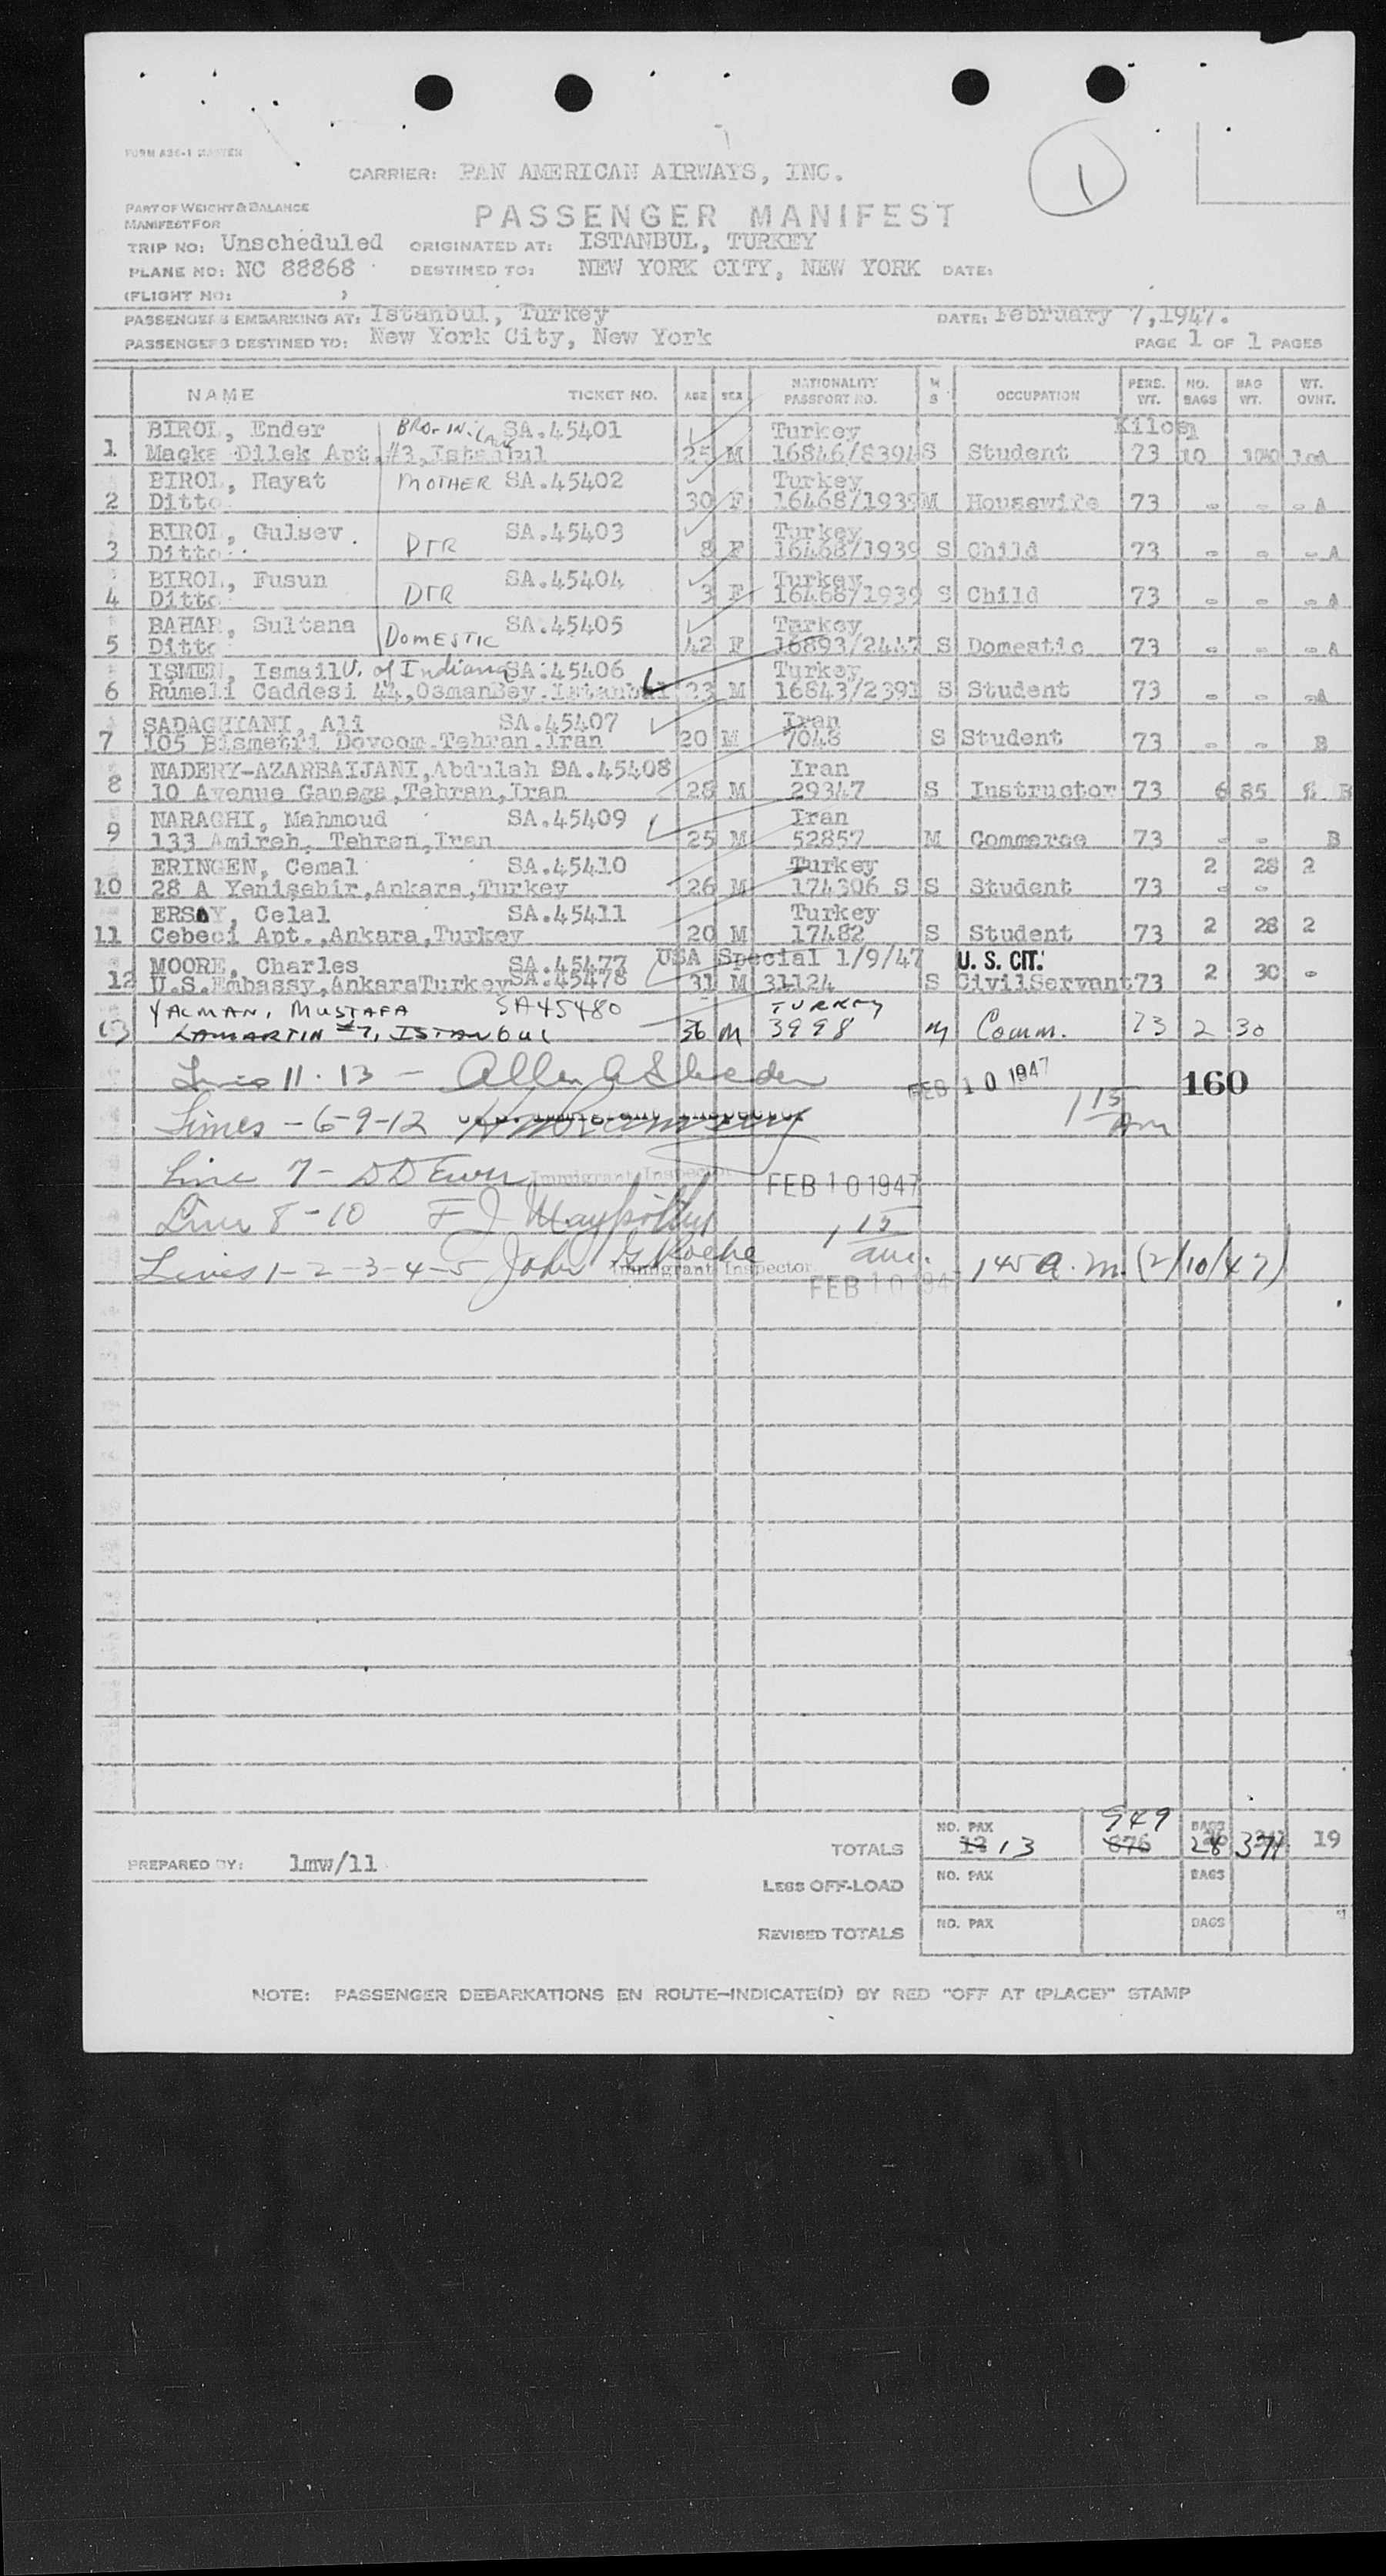 FORM A36-1 MASTER
CARRIER: PAN AMERICAN AIRWAYS, INC.
1
PART OF WEIGHT & BALANCE
MANIFEST FOR
PASSENGER MANIFEST
TRIP NO: Unscheduled ORIGINATED AT: ISTANBUL, TURKEY
PLANE NO: NC 88868 DESTINED TO: NEW YORK CITY, NEW YORK DATE:
(FLIGHT NO: )
PASSENGERS EMBARKING AT: Istanbul, Turkey DATE: February 7,1947.
PASSENGERS DESTINED TO: New York City, New York PAGE 1 OF 1 PAGES
NAME TICKET NO. AGE SEX NATIONALITY PASSPORT NO. M S OCCUPATION PERS. WT. NO. BAGS BAG WT. WT. OVHT.
BIROL, Ender BRO-IN-LAW SA.45401 Turkey Kilos
1 Maçka Dilek Apt.#3,Istanbul 25 M 16846/8394 S Student 73 10
BIROL, Hayat MOTHER SA.45402 Turkey
2 Ditto 30 F 16468/1939 M Housewife 73 - - - A
BIROL, Gulsev. DTR SA.45403 Turkey
3 Ditto 8 F 16468/1939 S Child 73 - - - A
BIROL, Fusun DTR SA.45404 Turkey
4 Ditto 3 F 16468/1939 S Child 73 - - - A
BAHAR, Sultana DOMESTIC SA.45405 Turkey
5 Ditto 42 F 16893/2447 S Domestic 73 - - - A
ISMEN, Ismail U. of Indiana SA.45406 Turkey
6 Rumeli Caddesi 44,OsmanBey.Istanbul 23 M 16843/2391 S Student 73 - - -A
SADAGHIANI, Ali SA.45407 Iran
7 105 Bismetri Dovoom.Tehran.Iran 20 M 7048 S Student 73 - - B
NADERY-AZARBAIJANI,Abdulah SA.45408 Iran
8 10 Avenue Ganega,Tehran,Iran 28 M 29347 S Instructor 73 6 85 B
NARAGHI, Mahmoud SA.45409 Iran
9 133 Amireh, Tehran,Iran 25 M 52857 M Commerce 73 - - B
ERINGEN, Cemal SA.45410 Turkey 2 28 2
10 28 A Yenişehir,Ankara,Turkey 26 M 174306 S S Student 73 - -
ERSOY, Celal SA.45411 Turkey
11 Cebeci Apt.,Ankara,Turkey 20 M 17482 S Student 73 2 28 2
MOORE, Charles SA.45477 USA Special 1/9/47 U. S. CIT.
12 U.S.Embassy,AnkaraTurkey SA.45478 31 M 31124 S CivilServant 73 2 30 -
YALMAN, MUSTAFA SA45480 TURKEY
13 LAMARTIN #7, ISTANBUL 36 M 3998 M Comm. 73 2 30
Lines 11 · 13 - FEB 10 1947 160
Lines - 6-9-12 1 15 Am
Line 7 - Immigrant Inspector FEB 10 1947
Lines 8-10 F J 1 15 am.
Lines 1-2-3-4-5 John G Roche Immigrant Inspector FEB 10 194 1 45 a.m. (2/10/47)
NO. PAX 949 BAGS
TOTALS 12 13 876 28 371 19
PREPARED BY: lmw/ll
LESS OFF-LOAD NO. PAX BAGS
REVISED TOTALS NO. PAX BAGS
NOTE: PASSENGER DEBARKATIONS EN ROUTE-INDICATE(D) BY RED "OFF AT (PLACE)" STAMP